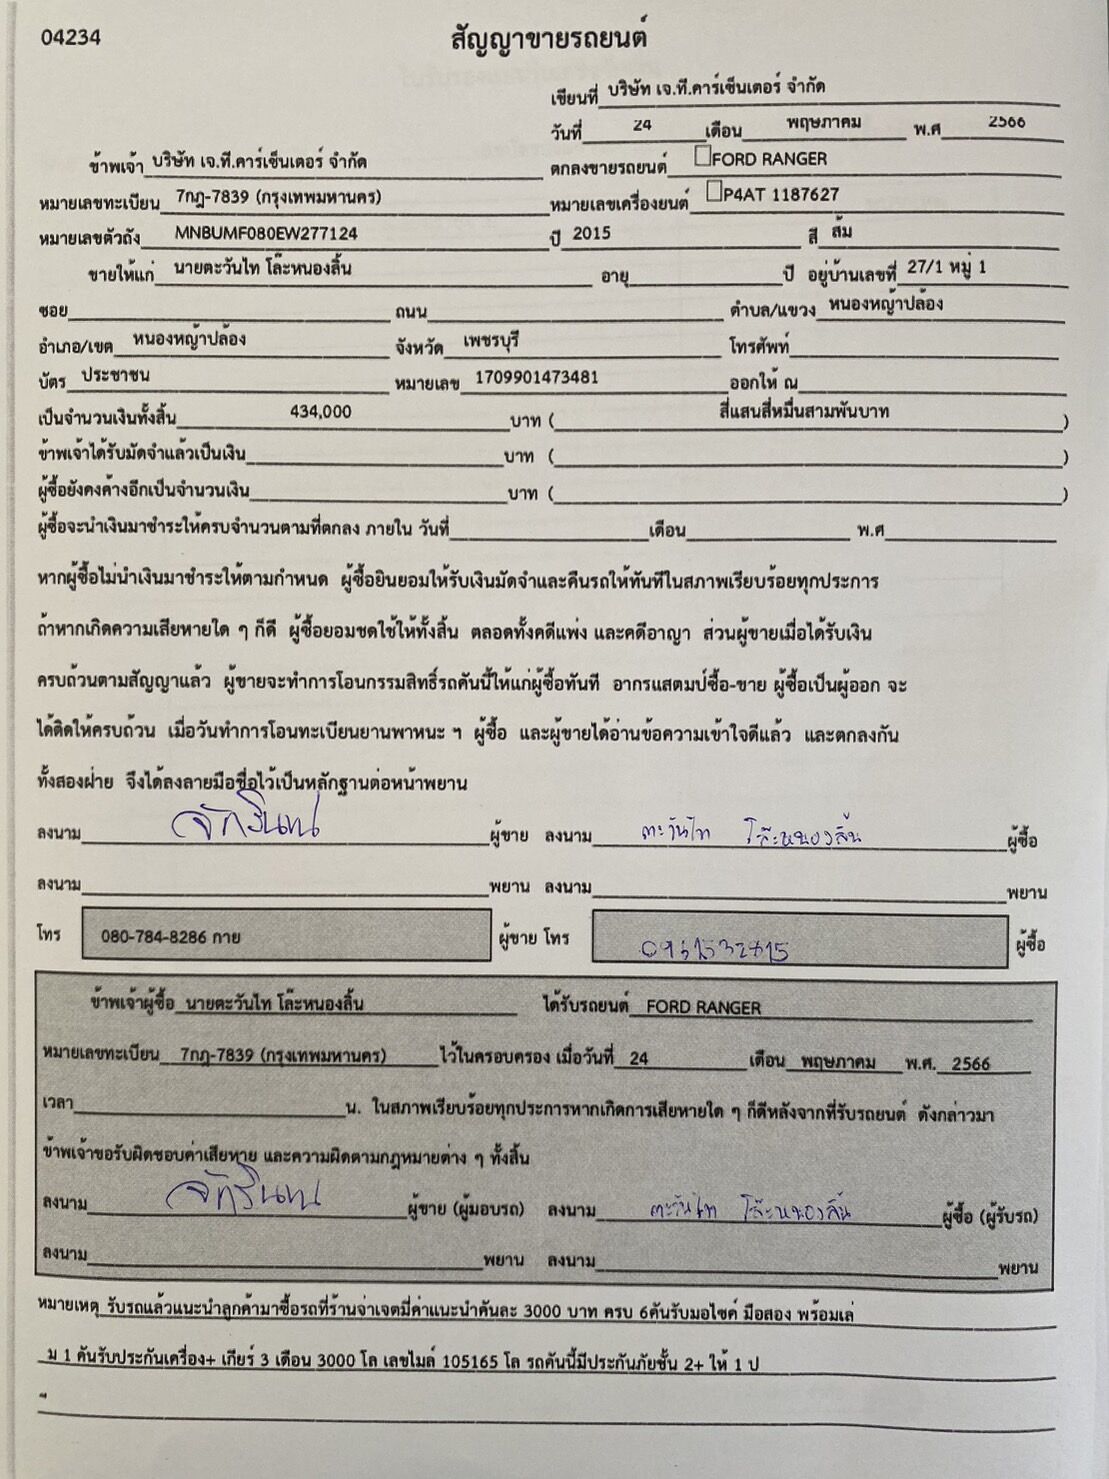 04234
สัญญาขายรถยนต์
เขียนที่ บริษัท เจ.ที.คาร์เซ็นเตอร์ จำกัด
วันที่ 24 เดือน พฤษภาคม พ.ศ 2566
ข้าพเจ้า บริษัท เจ.ที.คาร์เซ็นเตอร์ จำกัด ตกลงขายรถยนต์ FORD RANGER
หมายเลขทะเบียน 7กฎ-7839 (กรุงเทพมหานคร) หมายเลขเครื่องยนต์ P4AT 1187627
หมายเลขตัวถัง MNBUMF080EW277124 ปี 2015 สี ส้ม
ขายให้แก่ นายตะวันไท โล๊ะหนองลิ้น อายุ ปี อยู่บ้านเลขที่ 27/1 หมู่ 1
ซอย ถนน ตำบล/แขวง หนองหญ้าปล้อง
อำเภอ/เขต หนองหญ้าปล้อง จังหวัด เพชรบุรี โทรศัพท์
บัตร ประชาชน หมายเลข 1709901473481 ออกให้ ณ
เป็นจำนวนเงินทั้งสิ้น 434,000 บาท ( สี่แสนสี่หมื่นสามพันบาท )
ข้าพเจ้าได้รับมัดจำแล้วเป็นเงิน บาท ( )
ผู้ซื้อยังคงค้างอีกเป็นจำนวนเงิน บาท ( )
ผู้ซื้อจะนำเงินมาชำระให้ครบจำนวนตามที่ตกลง ภายใน วันที่ เดือน พ.ศ
หากผู้ซื้อไม่นำเงินมาชำระให้ตามกำหนด ผู้ซื้อยินยอมให้รับเงินมัดจำและคืนรถให้ทันทีในสภาพเรียบร้อยทุกประการ
ถ้าหากเกิดความเสียหายใด ๆ ก็ดี ผู้ซื้อยอมชดใช้ให้ทั้งสิ้น ตลอดทั้งคดีแพ่ง และคดีอาญา ส่วนผู้ขายเมื่อได้รับเงิน
ครบถ้วนตามสัญญาแล้ว ผู้ขายจะทำการโอนกรรมสิทธิ์รถคันนี้ให้แก่ผู้ซื้อทันที อากรแสตมป์ซื้อ-ขาย ผู้ซื้อเป็นผู้ออก จะ
ได้ติดให้ครบถ้วน เมื่อวันทำการโอนทะเบียนยานพาหนะ ฯ ผู้ซื้อ และผู้ขายได้อ่านข้อความเข้าใจดีแล้ว และตกลงกัน
ทั้งสองฝ่าย จึงได้ลงลายมือชื่อไว้เป็นหลักฐานต่อหน้าพยาน
ลงนาม ผู้ขาย ลงนาม ตะวันไท โล๊ะหนองลิ้น ผู้ซื้อ
ลงนาม พยาน ลงนาม พยาน
โทร 080-784-8286 กาย ผู้ขาย โทร ผู้ซื้อ
ข้าพเจ้าผู้ซื้อ นายตะวันไท โล๊ะหนองลิ้น ได้รับรถยนต์ FORD RANGER
หมายเลขทะเบียน 7กฎ-7839 (กรุงเทพมหานคร) ไว้ในครอบครอง เมื่อวันที่ 24 เดือน พฤษภาคม พ.ศ. 2566
เวลา น. ในสภาพเรียบร้อยทุกประการหากเกิดการเสียหายใด ๆ ก็ดีหลังจากที่รับรถยนต์ ดังกล่าวมา
ข้าพเจ้าขอรับผิดชอบค่าเสียหาย และความผิดตามกฎหมายต่าง ๆ ทั้งสิ้น
ลงนาม ผู้ขาย (ผู้มอบรถ) ลงนาม ตะวันไท โล๊ะหนองลิ้น ผู้ซื้อ (ผู้รับรถ)
ลงนาม พยาน ลงนาม พยาน
หมายเหตุ รับรถแล้วแนะนำลูกค้ามาซื้อรถที่ร้านจ่าเจตมีค่าแนะนำคันละ 3000 บาท ครบ 6คันรับมอไซค์ มือสอง พร้อมเล่
ม 1 คันรับประกันเครื่อง+ เกียร์ 3 เดือน 3000 โล เลขไมล์ 105165 โล รถคันนี้มีประกันภัยชั้น 2+ ให้ 1 ป